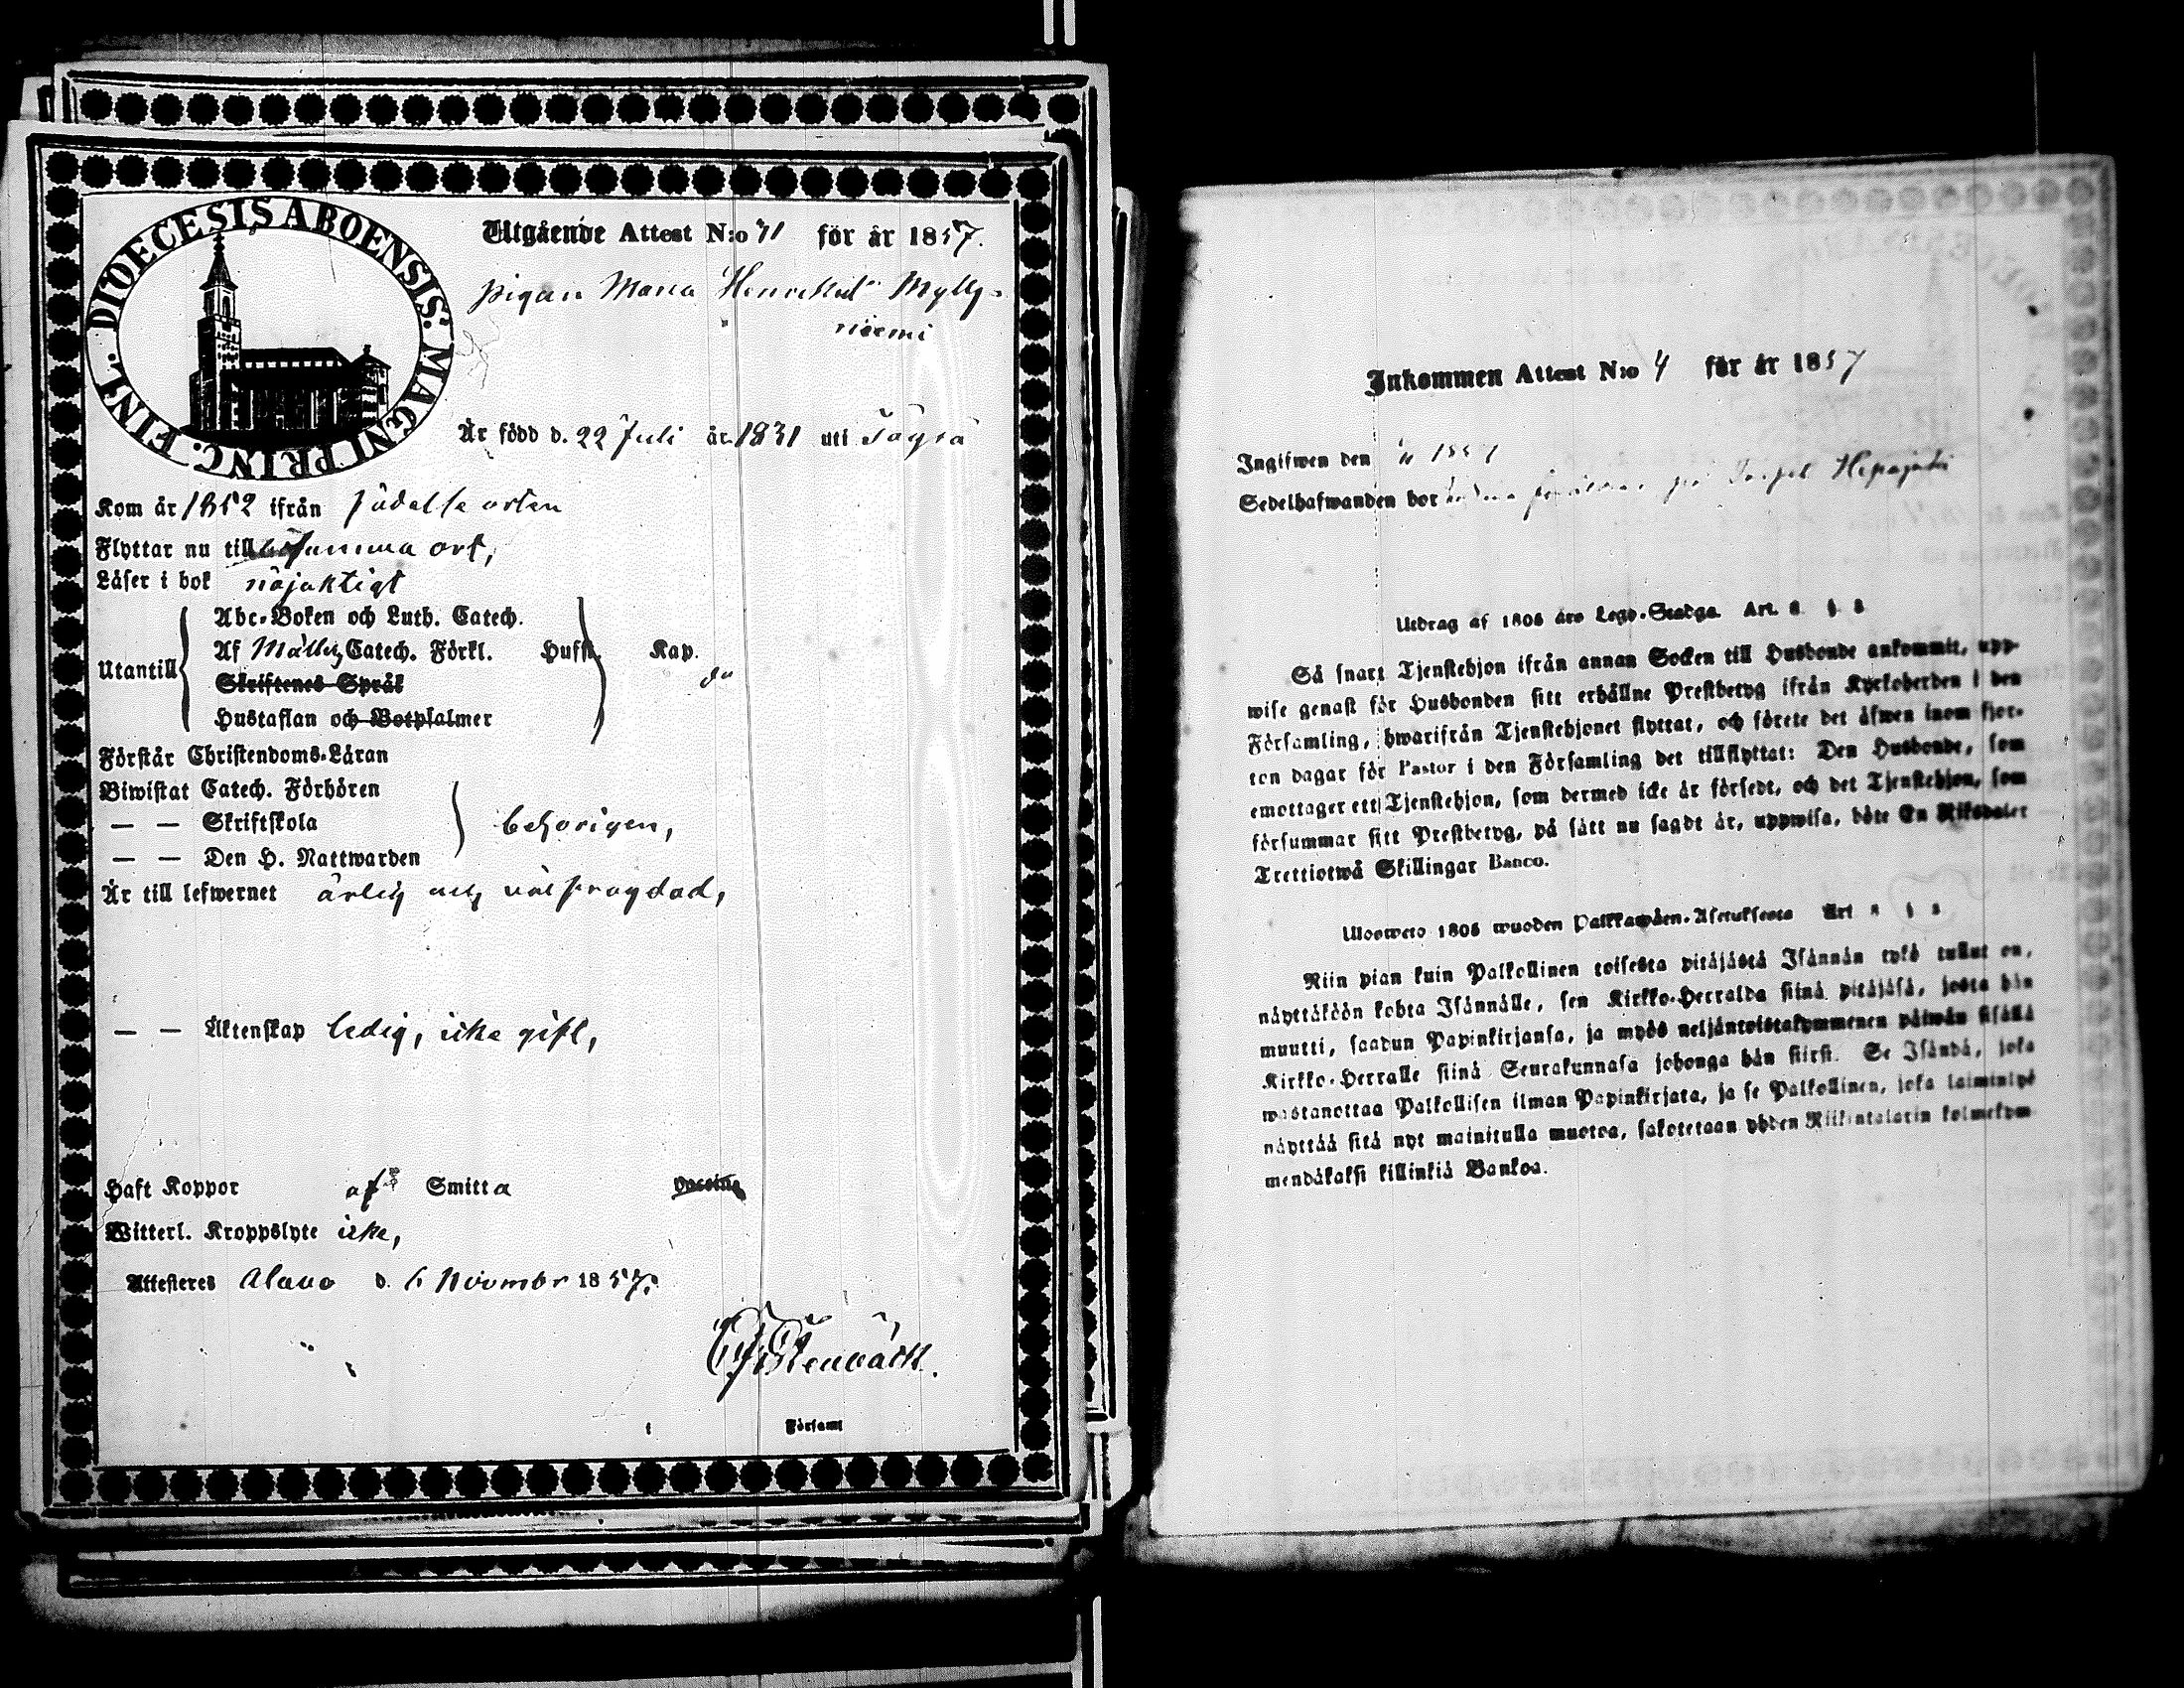 DIOECESIS ABOENSIS. MAGNI PRINC. FINL.
Utgående Attest N:o 41 för år 1857.
pigan Maria Henriksd:r Mylly-
niemi
Är född d. 22 Juli år 1831 uti Töysä
Kom år 1852 ifrån födelse orten
Flyttar nu till samma ort,
Läser i bok nöjaktigt
Utantill
Abc-Boken och Luth. Catech.
Af Möllers Catech. Förkl. Husst. Kap.
Skriftenes Språk
Hustaflan och Botpsalmer
Förstår Christendoms-Läran
Biwistat Catech. Förhören
— — Skriftskola behörigen,
— — Den H. Nattwarden
Är till lefwernet ärlig och välfrägdad,
— — Äktenskap ledig, icke gift,
Haft Koppor af Smitta
Witterl. Kroppslyte icke,
Attesteras Alavo d. 6 November 1857.
Stenbäck.
i Församl
Inkommen Attest N:o 4 för år 1857
Ingifwen den
Sedelhafwanden bor
Utdrag af 1805 års Lego-Stadga. Art. 8 §
Så snart Tjenstehjon ifrån annan Socken till Husbonde ankommit, upp-
wise genast för Husbonden sitt erhållne Prestbetyg ifrån Kyrkoherden i den
Församling, hwarifrån Tjenstehjonet flyttat, och förete det äfwen inom fjor-
ton dagar för Pastor i den Församling det tillflyttat: Den Husbonde, som
emottager ett Tjenstehjon, som dermed icke är försedt, och det Tjenstehjon, som
försummar sitt Prestbetyg, på sätt nu sagdt är, uppwisa, böte En Riksdaler
Trettiotwå Skillingar Banco.
Uloswero 1805 wuoden Palkkawäen-Asetuksesta Art §
Niin pian kuin Palkollinen toisesta pitäjästä Isännän tykö tullut on,
näyttäköön kohta Isännälle, sen Kirkko-Herralda siinä pitäjäsä, josta hän
muutti, saadun Papinkirjansa, ja myös neljäntoistakymmenen päiwän sisällä
Kirkko-Herralle siinä Seurakunnasa johonga hän siirsi. Se Isändä, joka
wastanottaa Palkollisen ilman Papinkirjata, ja se Palkollinen, joka laiminlyö
näyttää sitä nyt mainitulla muotoa, sakotetaan yhden Riikintalarin kolmekym-
mendäkaksi killinkiä Bankoa.